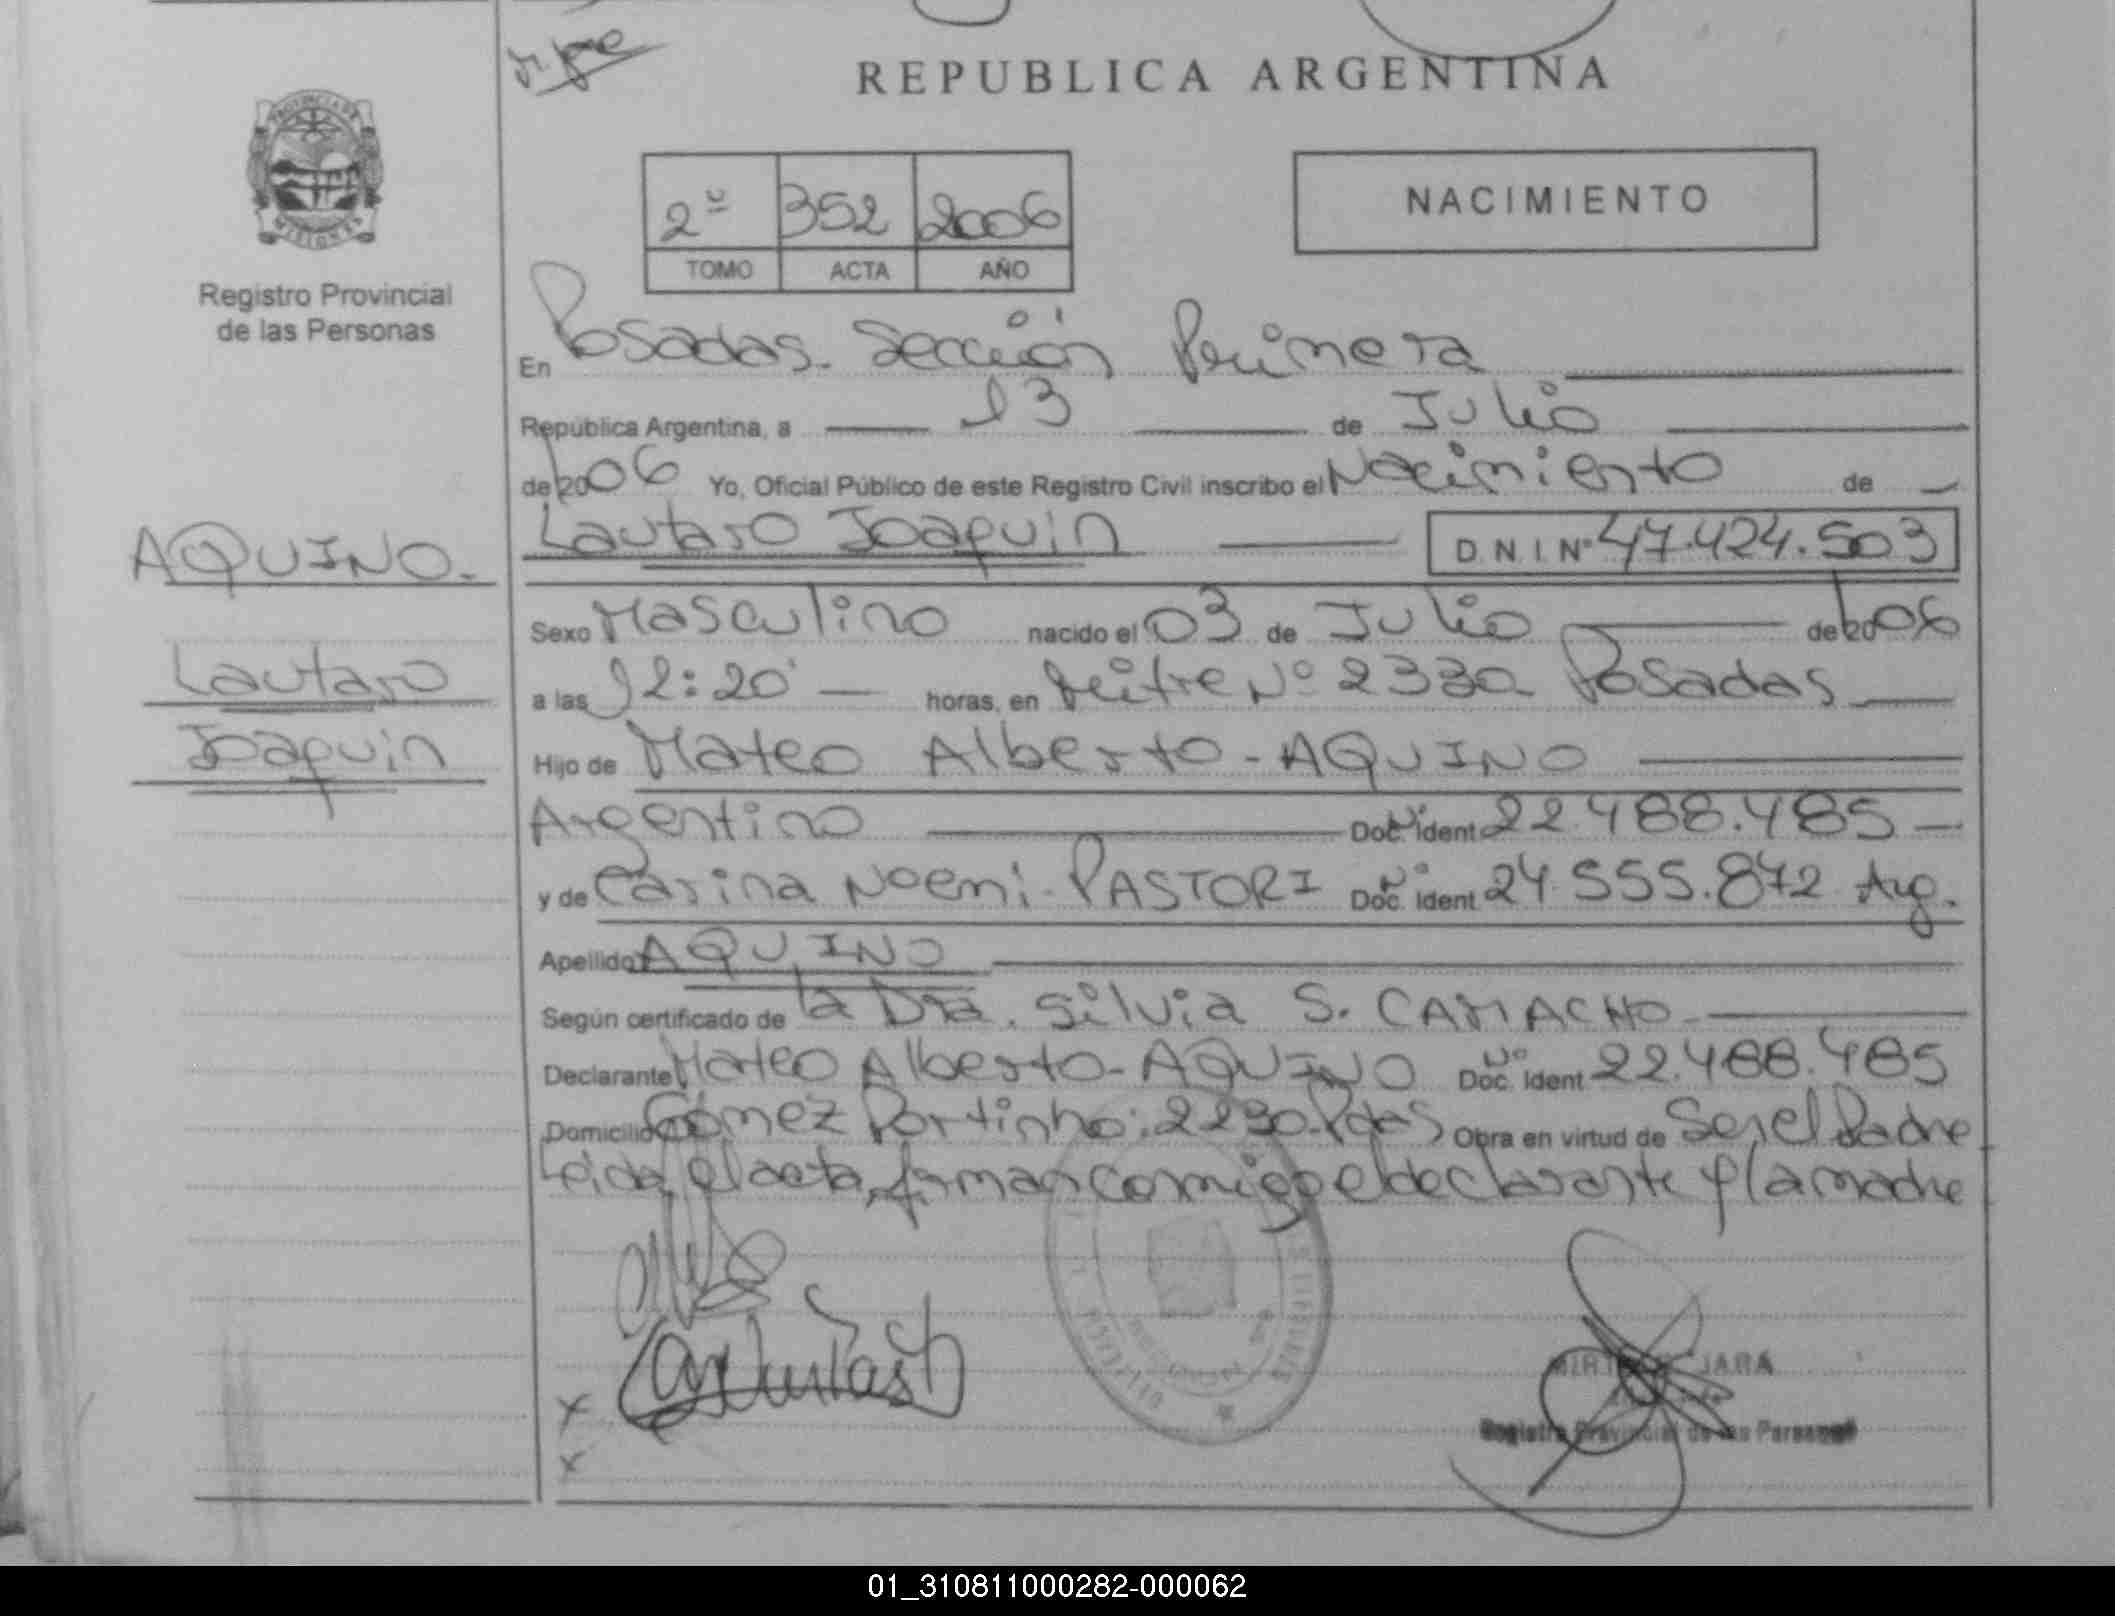 REPUBLICA ARGENTINA
PROVINCIA DE
MISIONES
Registro Provincial
de las Personas
2º 352 2006
TOMO ACTA AÑO
NACIMIENTO
En Posadas. Sección Primera
República Argentina, a 13 de Julio
de 2006 Yo, Oficial Público de este Registro Civil inscribo el Nacimiento de
Lautaro Joaquin D.N.I.Nº 47.424.503
AQUINO.
Lautaro
Joaquin
Sexo Masculino nacido el 03 de Julio de 2006
a las 12:20' horas, en Mitre Nº 2330 Posadas
Hijo de Mateo Alberto - AQUINO
Argentino Doc. Nº Ident 22.488.485
y de Carina Noemi - PASTORI Doc. Nº Ident. 24.555.872 Arg.
Apellido AQUINO
Según certificado de la Dra. Silvia S. CAMACHO
Declarante Mateo Alberto - AQUINO Doc. Nº Ident 22.488.485
Domicilio Gómez Portinho: 2230 - Pdas Obra en virtud de Ser el Padre
Leida el acta, firman conmigo el declarante y la madre
JARA
Registro Provincial de las Personas
01_310811000282-000062